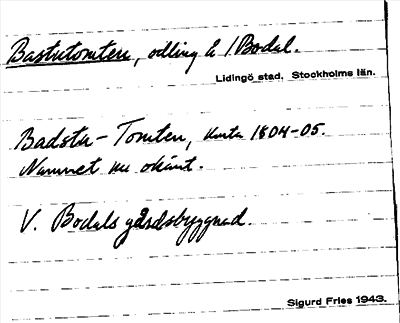 Bastutomten, odling å 1 Bodal.
Lidingö stad. Stockholms län.
Badstu-Tomten, karta 1804-05.
Namnet nu okänt.
V. Bodals gårdsbyggnad.
Sigurd Fries 1943.